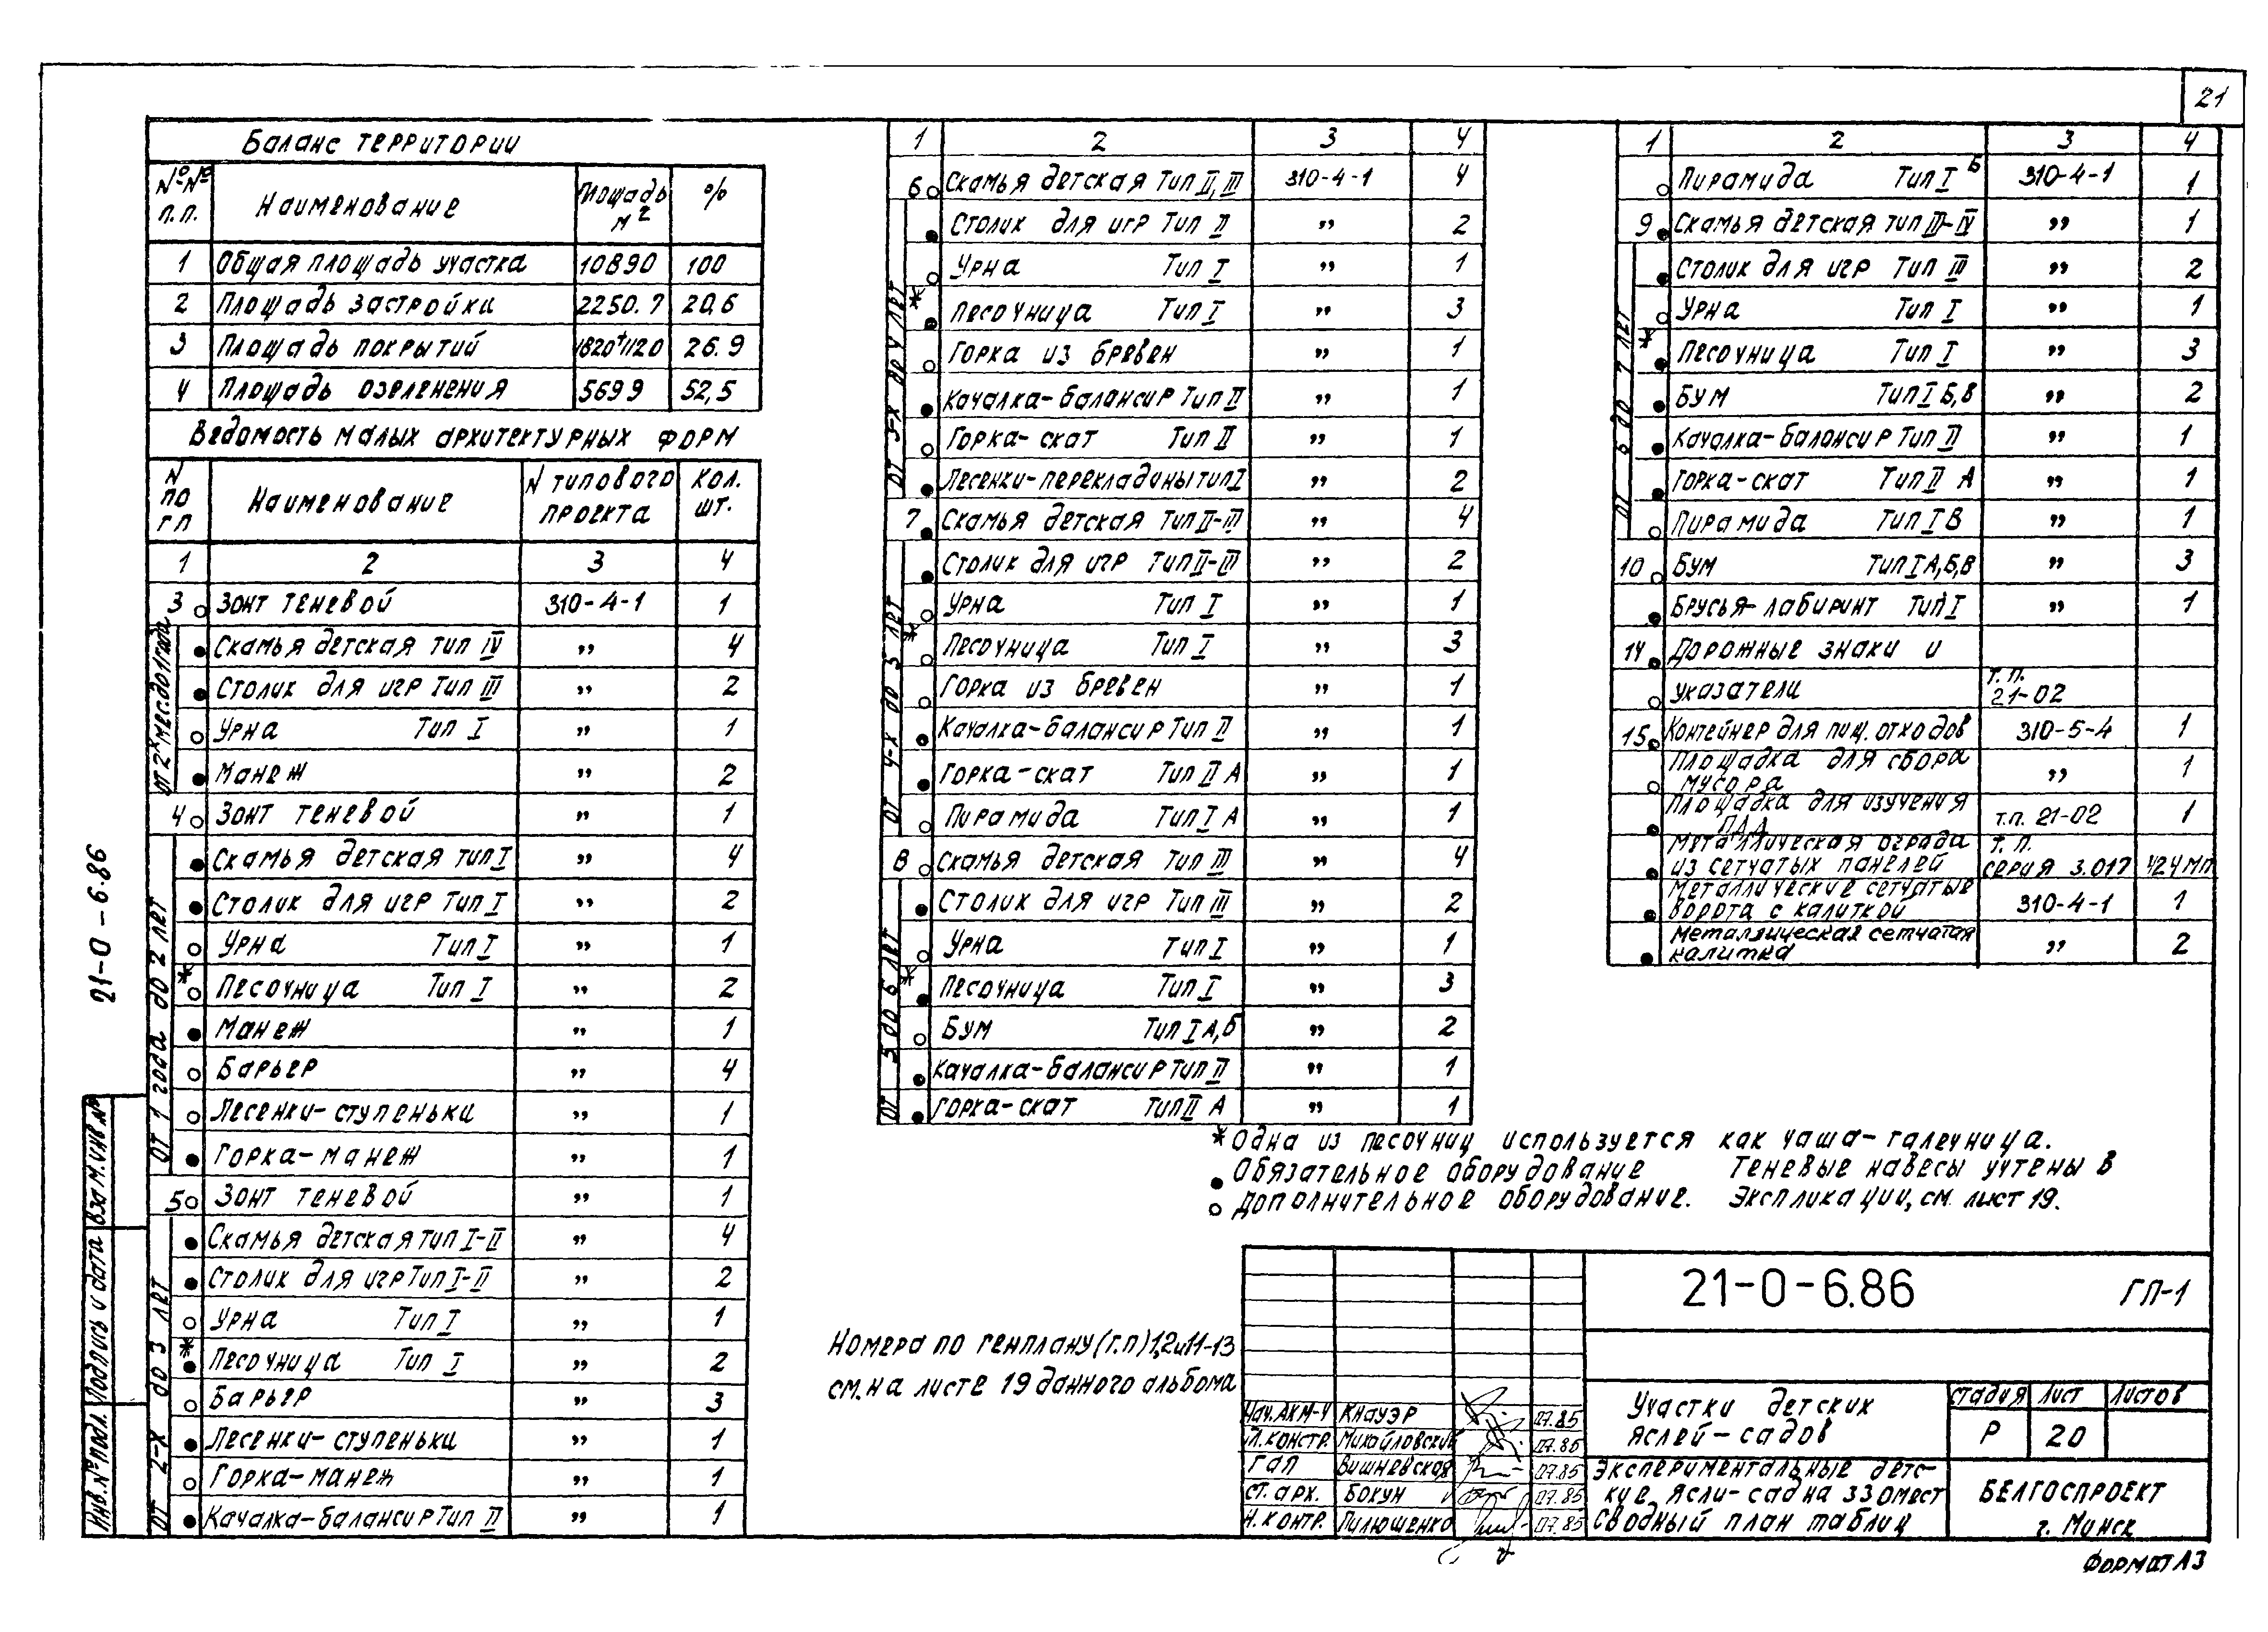 21
Баланс территории
№№ п.п. Наименование Площадь м2 %
1 Общая площадь участка 10890 100
2 Площадь застройки 2250.7 20,6
3 Площадь покрытий 1820+1120 26.9
4 Площадь озеленения 5699 52,5
Ведомость малых архитектурных форм
N по гп Наименование N типового проекта Кол. шт.
1 2 3 4
3 Зонт теневой 310-4-1 1
от 2х мес. до 1 года
Скамья детская тип IV " 4
Столик для игр Тип III " 2
Урна Тип I " 1
Манеж " 2
4 Зонт теневой " 1
от 1 года до 2 лет
Скамья детская тип I " 4
Столик для игр Тип I " 2
Урна Тип I " 1
* Песочница Тип I " 2
Манеж " 1
Барьер " 4
Лесенки-ступеньки " 1
Горка-манеж " 1
5 Зонт теневой " 1
от 2-х до 3 лет
Скамья детская тип I-II " 4
Столик для игр Тип I-II " 2
Урна Тип I " 1
* Песочница Тип I " 2
Барьер " 3
Лесенки-ступеньки " 1
Горка-манеж " 1
Качалка-балансир Тип II " 1
1 2 3 4
6 Скамья детская Тип II, III 310-4-1 4
от 3-х до 4 лет
Столик для игр Тип II " 2
Урна Тип I " 1
* Песочница Тип I " 3
Горка из бревен " 1
Качалка-балансир Тип II " 1
Горка-скат Тип II " 1
Лесенки-перекладины тип I " 2
7 Скамья детская Тип II-III " 4
от 4-х до 5 лет
Столик для игр Тип II-III " 2
Урна Тип I " 1
* Песочница Тип I " 3
Горка из бревен " 1
Качалка-балансир Тип II " 1
Горка-скат Тип II А " 1
Пирамида Тип I А " 1
8 Скамья детская Тип III " 4
от 5 до 6 лет
Столик для игр Тип III " 2
Урна Тип I " 1
* Песочница Тип I " 3
Бум Тип I А,б " 2
Качалка-балансир Тип II " 1
Горка-скат Тип II А " 1
1 2 3 4
Пирамида Тип I Б 310-4-1 1
9 Скамья детская тип III-IV " 1
от 6 до 7 лет
Столик для игр Тип III " 2
Урна Тип I " 1
* Песочница Тип I " 3
Бум Тип I Б,В " 2
Качалка-балансир Тип II " 1
Горка-скат Тип II А " 1
Пирамида Тип I В " 1
10 Бум Тип I А,Б,В " 3
Брусья-лабиринт Тип I " 1
14 Дорожные знаки и
указатели Т.П. 21-02
15 Контейнер для пищ. отходов 310-5-4 1
Площадка для сбора
мусора " 1
Площадка для изучения
ПДД т.п. 21-02 1
Металлическая ограда
из сетчатых панелей Т.П. серия 3.017 424 мп
Металлические сетчатые
ворота с калиткой 310-4-1 1
Металлическая сетчатая
калитка " 2
* Одна из песочниц используется как чаша-галечница.
● Обязательное оборудование
○ Дополнительное оборудование.
Теневые навесы учтены в
экспликации, см. лист 19.
Номера по генплану (г.п) 1,2 и 11-13
см. на листе 19 данного альбома
21-0-6.86
Взам. инв №
Подпись и дата
Инв. № подл.
21-0-6.86 ГП-1
Участки детских
яслей-садов
Стадия Лист Листов
Р 20
Экспериментальные детс-
кие ясли-сад на 330 мест
Сводный план таблиц
БЕЛГОСПРОЕКТ
г. Минск
Нач. АКМ-4 Кнауэр 07.85
Гл. констр. Михайловский 07.85
ГАП Вишневская 07.85
Ст. арх. Бокун 07.85
Н. контр. Пилюшенко 07.85
Формат А3